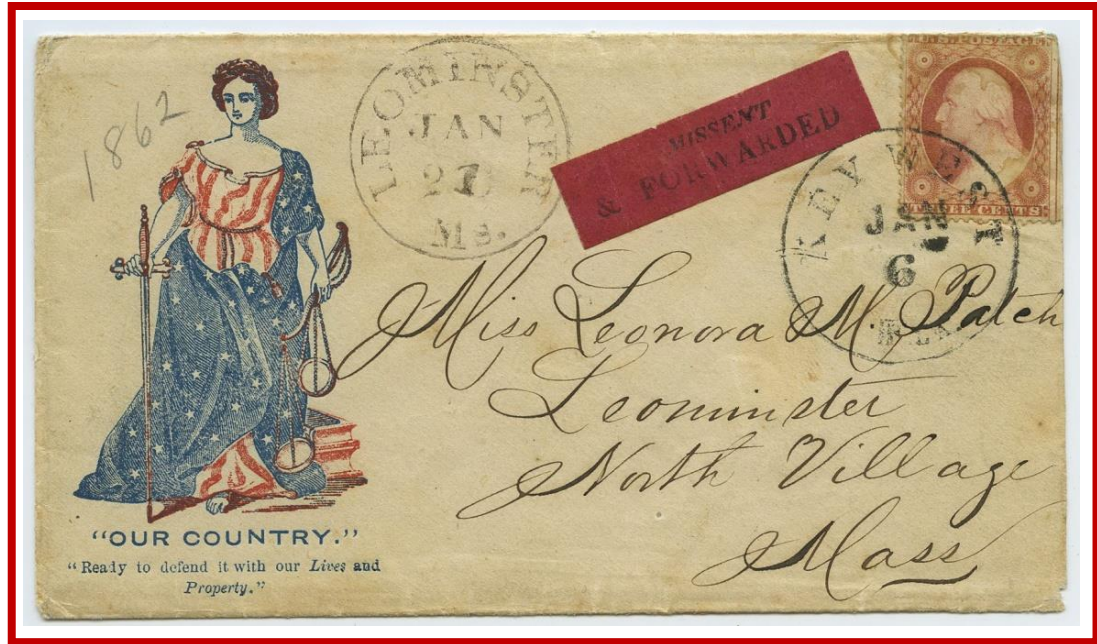 1862
LEOMINSTER
JAN
27
Ms.
MISSENT
& FORWARDED
U.S. POSTAGE
THREE CENTS.
KEY WEST
JAN
6
Miss Leonora M. Patch
Leominster
North Village
Mass
“OUR COUNTRY.”
“Ready to defend it with our Lives and
Property.”